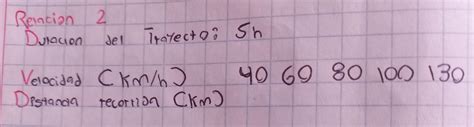 Relacion 2
Duracion del Trayecto: 5h
Velocidad (Km/h) 40 60 80 100 130
Distancia recorrida (Km)